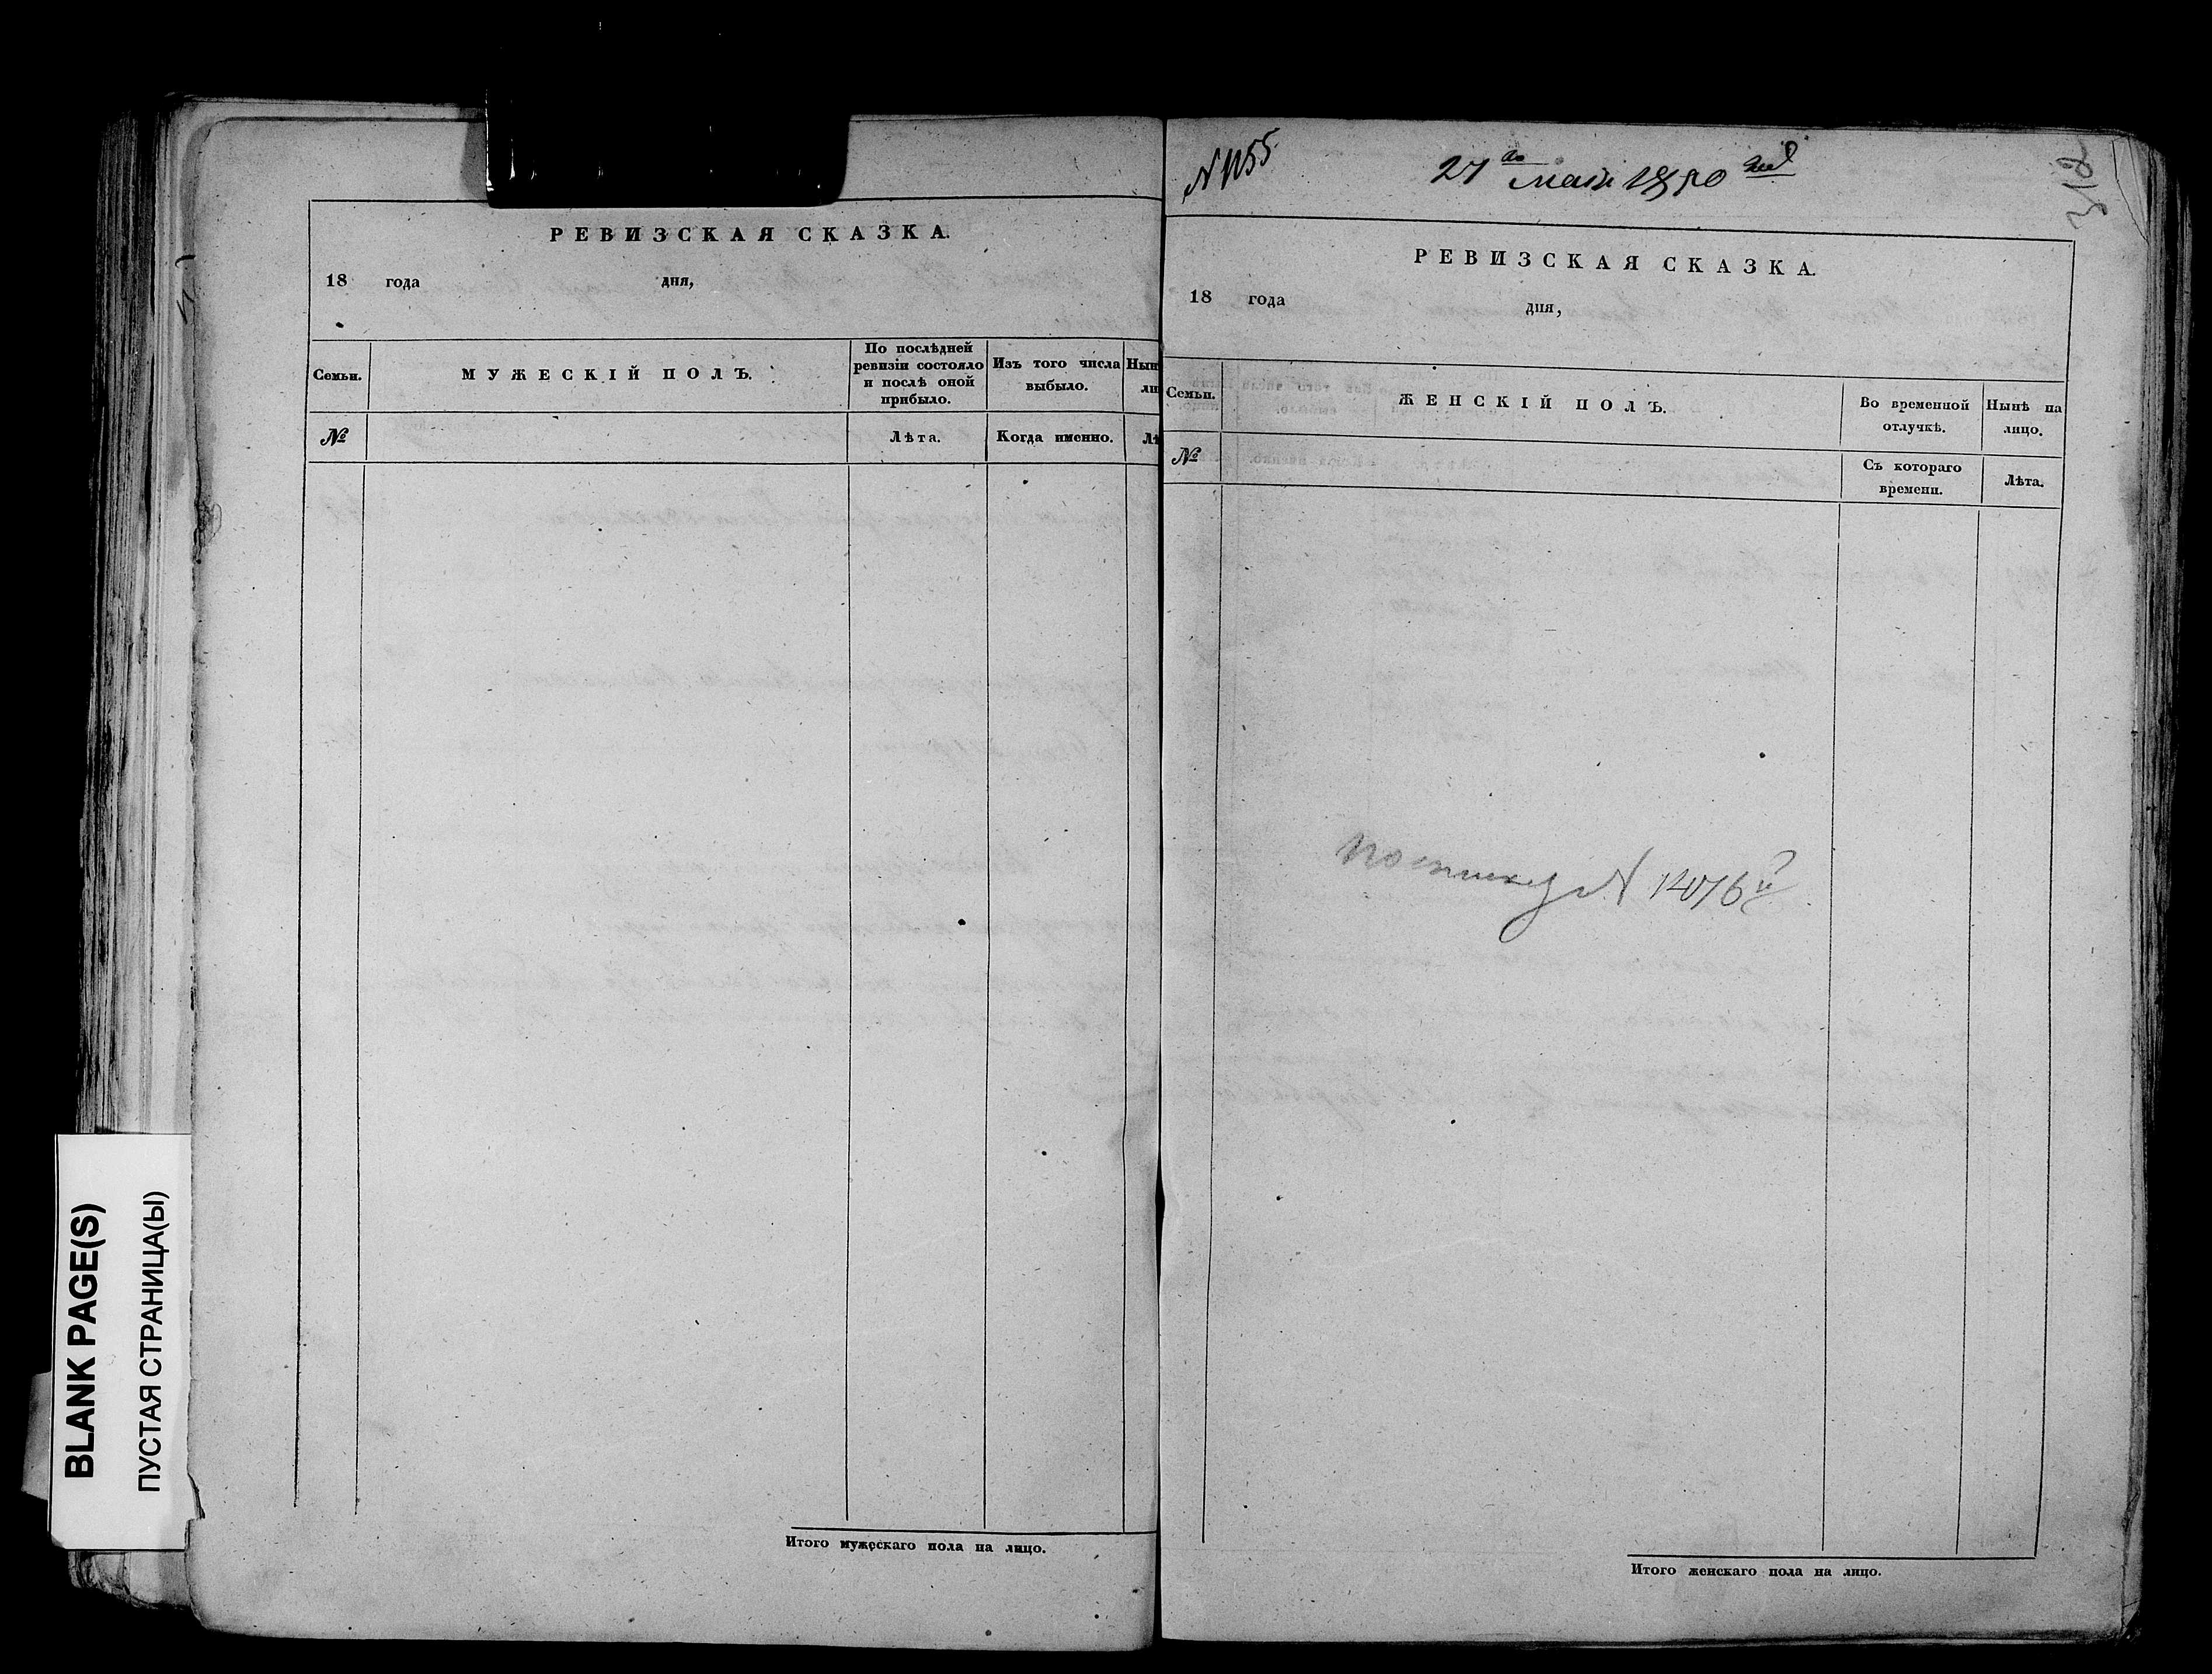 РЕВИЗСКАЯ СКАЗКА.
18 года дня,
Семьи.
МУЖЕСКІЙ ПОЛЪ.
По послѣдней
ревизіи состояло
и послѣ оной
прибыло.
Изъ того числа
выбыло.
Нын
ли
№
Лѣта.
Когда именно.
Лѣ
Итого мужескаго пола на лицо.
N 1155
27го мая 1850 год
312
РЕВИЗСКАЯ СКАЗКА.
18 года
дня,
Семьи.
ЖЕНСКІЙ ПОЛЪ.
Во временной
отлучкѣ.
Нынѣ на
лицо.
№
Съ котораго
времени.
Лѣта.
по списку N 14076
Итого женскаго пола на лицо.
BLANK PAGE(S)
ПУСТАЯ СТРАНИЦА(Ы)